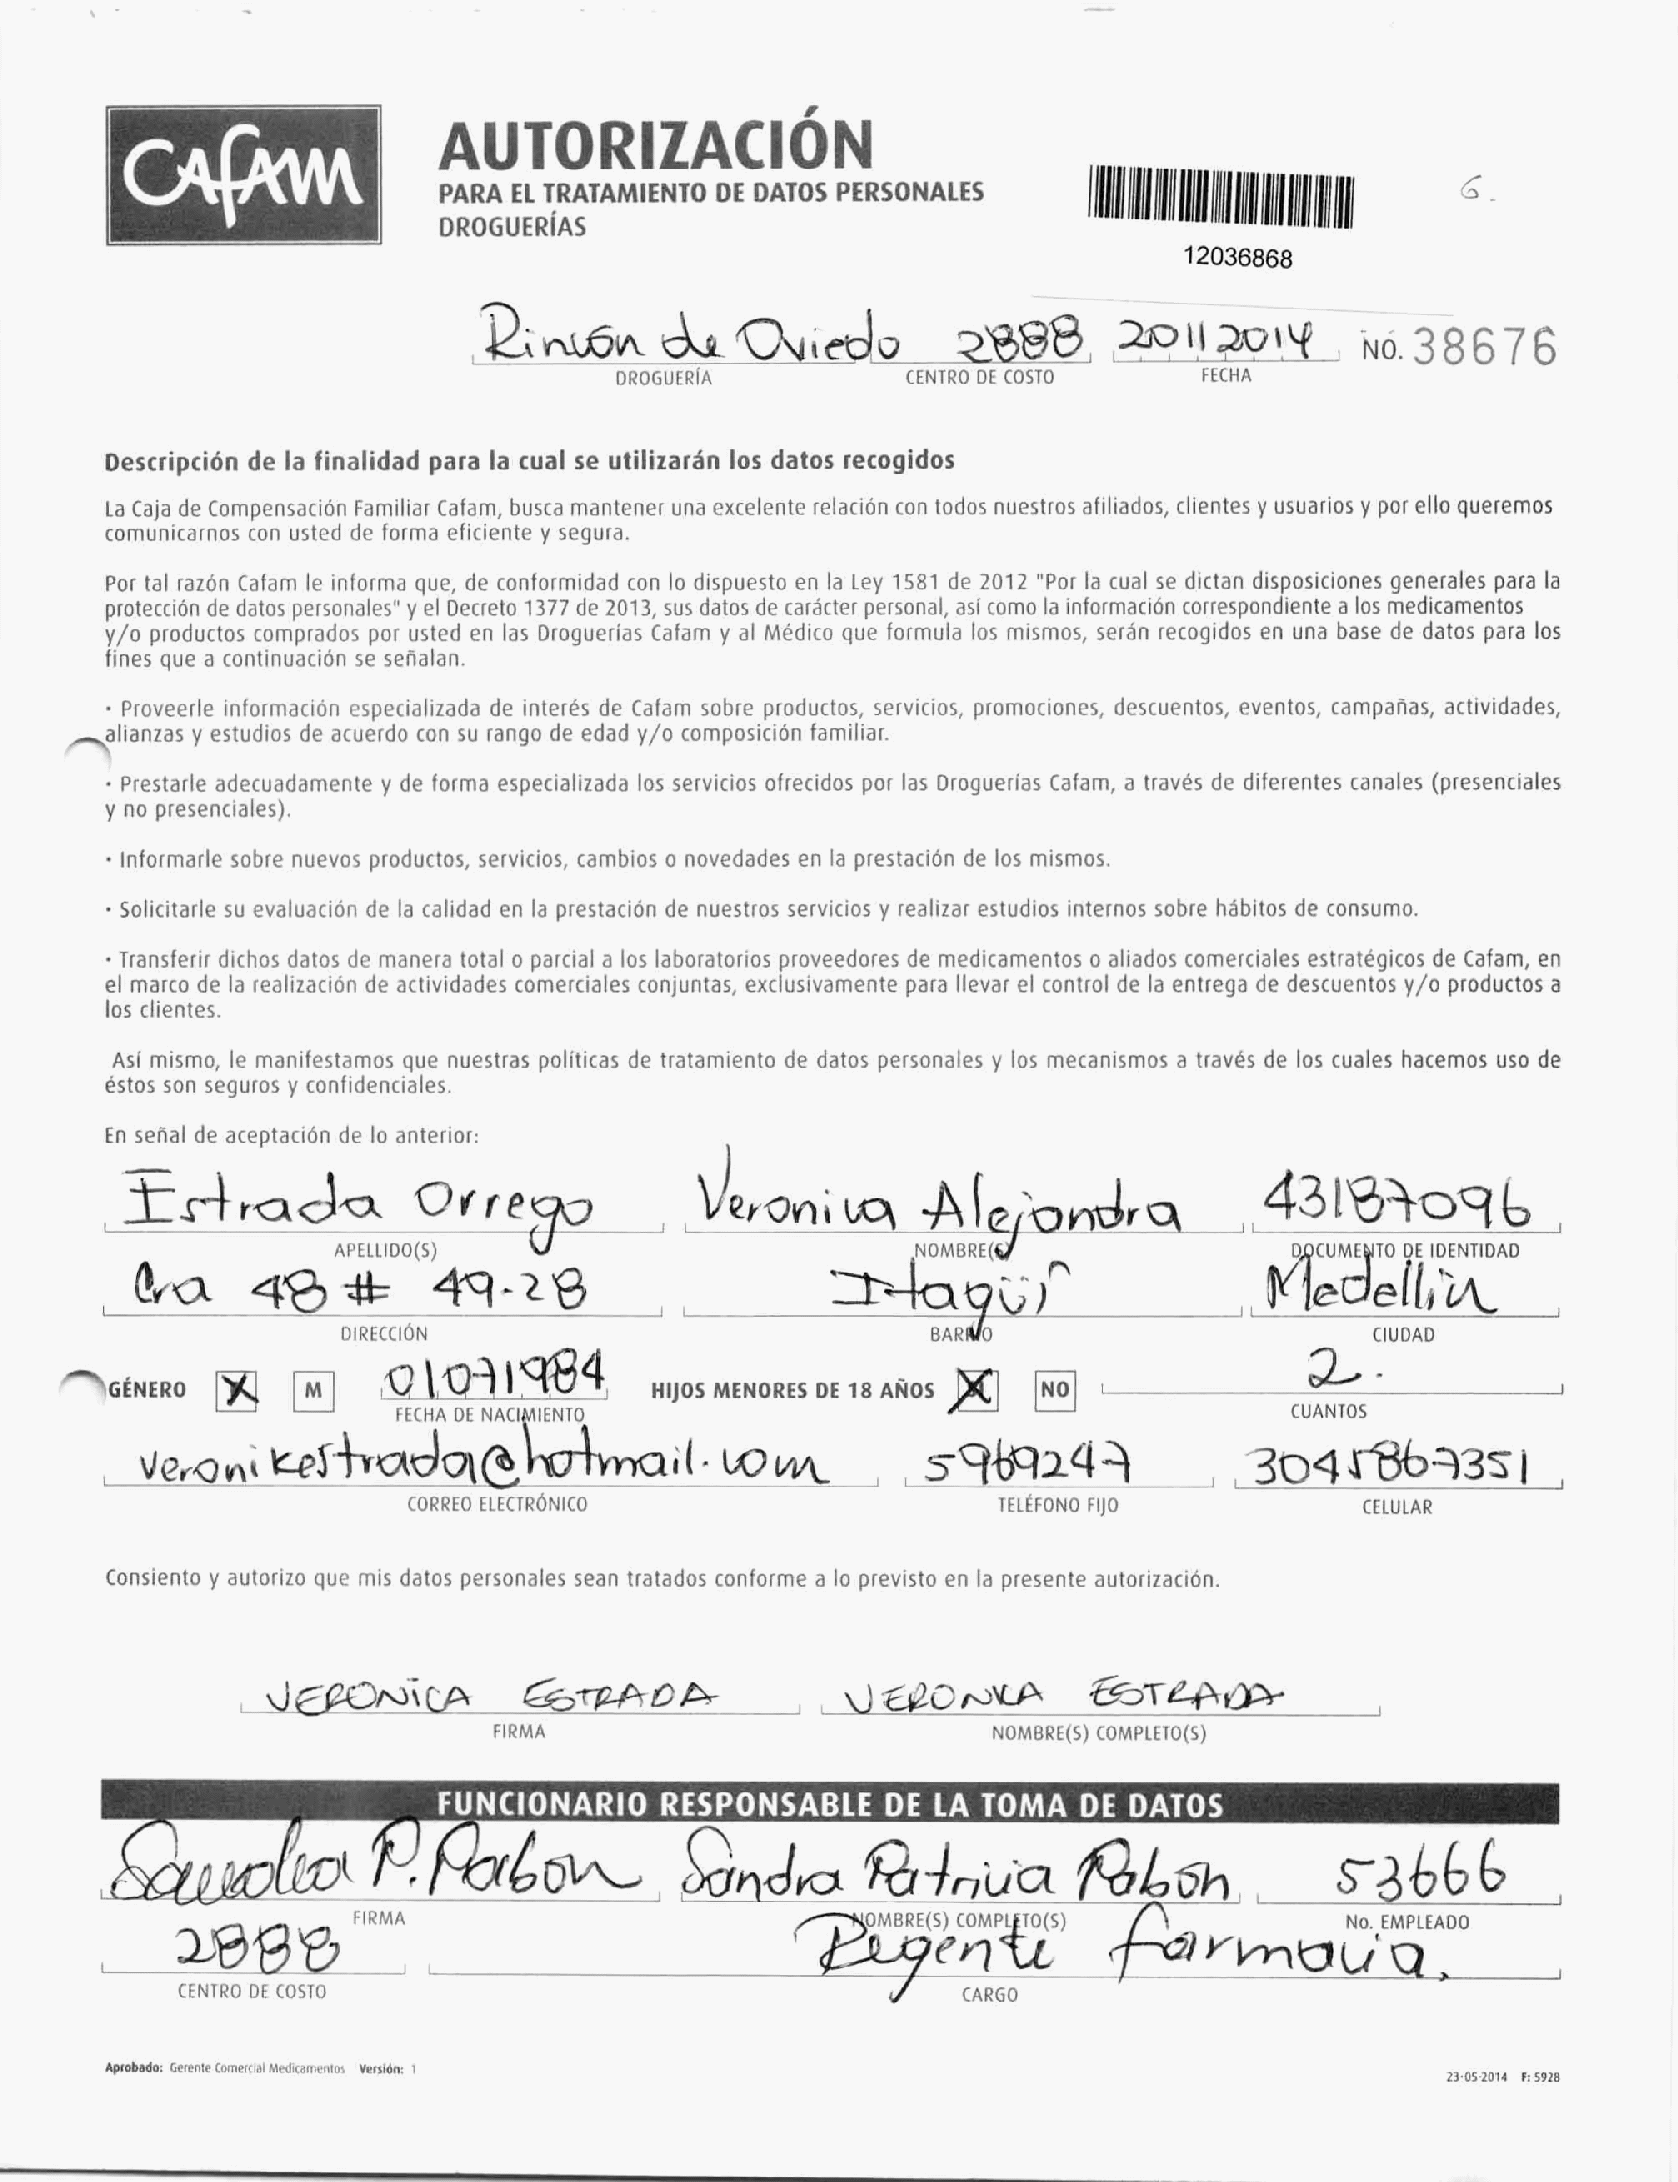 CAFAM
AUTORIZACIÓN
PARA EL TRATAMIENTO DE DATOS PERSONALES
DROGUERÍAS
6.
12036868
Rincón de Oviedo 2888 20112014 NO. 38676
DROGUERÍA CENTRO DE COSTO FECHA
Descripción de la finalidad para la cual se utilizarán los datos recogidos
La Caja de Compensación Familiar Cafam, busca mantener una excelente relación con todos nuestros afiliados, clientes y usuarios y por ello queremos
comunicarnos con usted de forma eficiente y segura.
Por tal razón Cafam le informa que, de conformidad con lo dispuesto en la Ley 1581 de 2012 "Por la cual se dictan disposiciones generales para la
protección de datos personales" y el Decreto 1377 de 2013, sus datos de carácter personal, así como la información correspondiente a los medicamentos
y/o productos comprados por usted en las Droguerías Cafam y al Médico que formula los mismos, serán recogidos en una base de datos para los
fines que a continuación se señalan.
· Proveerle información especializada de interés de Cafam sobre productos, servicios, promociones, descuentos, eventos, campañas, actividades,
alianzas y estudios de acuerdo con su rango de edad y/o composición familiar.
· Prestarle adecuadamente y de forma especializada los servicios ofrecidos por las Droguerías Cafam, a través de diferentes canales (presenciales
y no presenciales).
· Informarle sobre nuevos productos, servicios, cambios o novedades en la prestación de los mismos.
· Solicitarle su evaluación de la calidad en la prestación de nuestros servicios y realizar estudios internos sobre hábitos de consumo.
· Transferir dichos datos de manera total o parcial a los laboratorios proveedores de medicamentos o aliados comerciales estratégicos de Cafam, en
el marco de la realización de actividades comerciales conjuntas, exclusivamente para llevar el control de la entrega de descuentos y/o productos a
los clientes.
Así mismo, le manifestamos que nuestras políticas de tratamiento de datos personales y los mecanismos a través de los cuales hacemos uso de
éstos son seguros y confidenciales.
En señal de aceptación de lo anterior:
Estrada Orrego Veronica Alejandra 43187096
APELLIDO(S) NOMBRE(S) DOCUMENTO DE IDENTIDAD
Cra 48 # 49-28 Itagüi Medellin
DIRECCIÓN BARRIO CIUDAD
GÉNERO X M 01071984 HIJOS MENORES DE 18 AÑOS X NO 2.
FECHA DE NACIMIENTO CUANTOS
veronikestrada@hotmail.com 5969247 3045867351
CORREO ELECTRÓNICO TELÉFONO FIJO CELULAR
Consiento y autorizo que mis datos personales sean tratados conforme a lo previsto en la presente autorización.
VERONICA ESTRADA VERONICA ESTRADA
FIRMA NOMBRE(S) COMPLETO(S)
FUNCIONARIO RESPONSABLE DE LA TOMA DE DATOS
Sandra P. Pabon Sandra Patricia Pabón 53666
FIRMA NOMBRE(S) COMPLETO(S) No. EMPLEADO
2888 Regente farmacia.
CENTRO DE COSTO CARGO
Aprobado: Gerente Comercial Medicamentos Versión: 1
23-05-2014 F: 5928